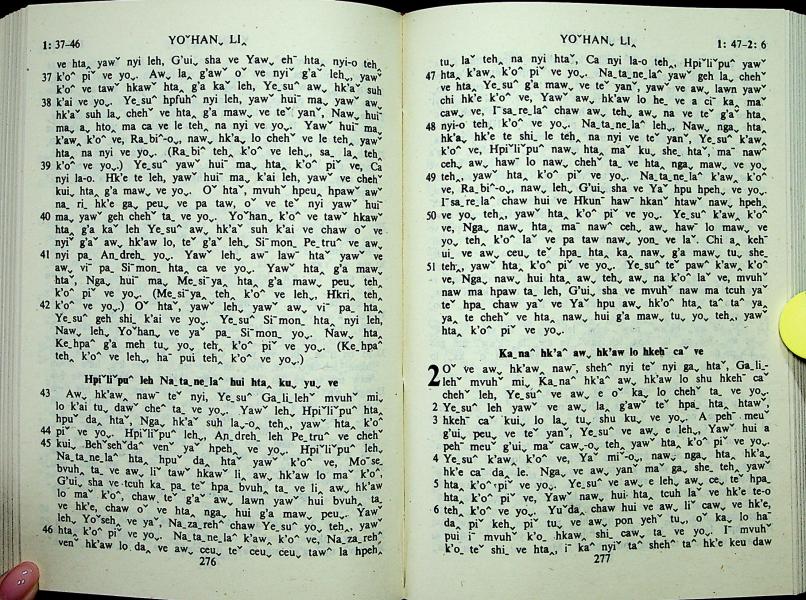 1: 37-46 YOˇHANˬ LIꞈ
ve htaꞈ yawˇ nyi leh, G'uiˬ sha ve Yawˬ ehˆ htaꞈ nyi-o tehꞈ
37 k'oˆ piˇ ve yoˬ. Awˬ laꞈ g'awˇ oˇ ve nyiˇ g'aˇ lehˬ, yawˇ
k'oˆ ve tawˇ hkawˇ htaꞈ g'a kaˇ leh, Yeˍsuˆ awˬ hk'aˇ suh
38 k'ai ve yoˬ. Yeˍsuˆ hpfuhˆ nyi leh, yawˇ huiˉ ma, yawˇ awˬ
hk'aˇ suh laˬ chehˇ ve htaꞈ g'a mawˬ ve teˇ yanˇ, Nawˬ huiˉ
maˬ aˬ htoˬ ma ca ve le teh na nyi ve yoˬ. Yawˇ huiˉ ma
k'awˬ k'oˆ ve, Raˍbiˆ-oˬ, nawˬ hk'aˬ lo chehˇ ve le teh, yawˇ
htaˬ na nyi ve yoˬ. (Raˍbiˆ tehꞈ k'oˆ ve lehˬ, saˍ laˬ tehꞈ
39 k'oˆ ve yoˬ.) Yeˍsuˆ yawˇ huiˉ ma htaꞈ k'oˆ piˇ ve, Ca
nyi la-o. Hk'e te leh, yawˇ huiˉ ma k'ai leh, yawˇ ve chehˇ
kuiˬ htaꞈ g'a mawˬ ve yoˬ. Oˇ htaˇ, mvuhˇ hpeuˬ hpawˇ awˬ
naˍ riˬ hk'e gaˬ peuˬ ve pa taw, oˇ ve teˇ nyi yawˇ huiˉ
40 maˬ yawˇ geh chehˇ ta ve yoˬ. Yoˇhanˬ k'oˆ ve tawˇ hkawˇ
htaꞈ g'a kaˇ leh Yeˍsuˆ awˬ hk'aˇ suh k'ai ve chaw oˇ ve
nyiˇ g'aˇ awˬ hk'aw lo, teˇ g'aˇ leh, Siˇmonˍ Peˍtruˆ ve awˬ
41 nyi paˍ Anˍdrehˍ yoˬ. Yawˇ lehˬ awˇ lawˇ htaˇ yawˇ ve
awˬ viˇ paˍ Siˇmonˍ htaꞈ ca ve yoˬ. Yawˇ htaꞈ g'a mawˬ
htaˇ, Ngaˬ huiˉ ma, Meˍsiˇyaˍ htaꞈ g'a mawˬ peuˬ tehꞈ
k'oˆ piˇ ve yoˬ. (Meˍsiˇyaˍ tehꞈ k'oˆ ve lehˬ, Hkriꞈ tehꞈ
42 k'oˆ ve yoˬ.) Oˇ htaˇ, yawˇ lehˬ yawˇ awˬ viˇ paˍ htaꞈ
Yeˍsuˆ geh shiꞈ k'ai ve yoˬ. Yeˍsuˆ Siˇmonˍ htaꞈ nyi leh,
Nawˬ lehˬ Yoˇhanˬ ve yaˇ paˍ Siˇmonˍ yoˬ. Nawˬ htaꞈ
Keˍhpaˆ g'a meh tuˬ yoˬ tehꞈ k'oˆ piˇ ve yoˬ. (Keˍhpaˆ
tehꞈ k'oˆ ve lehˬ, haˉ pui tehꞈ k'oˆ ve yoˬ.)
Hpiˇliˇpuˆ leh Naˍtaˍneˍlaˆ hui htaꞈ kuˬ yuˬ ve
43 Awˬ hk'awˬ nawˉ teˇ nyi, Yeˍsuˆ Gaˍliˍlehˇ mvuhˇ mi,
lo k'ai tuˬ dawˇ cheˆ ta ve yoˬ. Yawˇ leh, Hpiˇliˇpuˆ htaꞈ
hpuˇ daˬ htaˇ, Ngaˬ hk'aˇ suh laˬ-o tehꞈ, yawˇ htaꞈ k'oˆ
44 piˇ ve yoˬ. Hpiˇliˇpuˆ lehˬ, Anˍdrehˍ leh Peˍtruˆ ve chehˇ
45 kuiˬ Behˇsehˇdaˆ venˇ yaˇ hpeh ve yoˬ. Hpiˇliˇpuˆ leh,
Naˍtaˍneˍlaˆ htaꞈ hpuˇ da htaˇ yawˇ k'oˆ ve, Moˇse
bvuhꞈ ta ve awˬ liˇ tawˇ hkawˇ liˬ awˬ hk'aw lo ma kˇoˆ
G'uiˬ sha ve tcuh kaˬ paˍ teˇ hpaˬ bvuhꞈ ta ve liˬ awˬ hk'aw
lo maˇ k'oˆ, chaw teˇ g'aˇ awˬ lawn yawˇ hui bvuhꞈ ta
ve hk'e, chaw oˇ ve htaꞈ ngaˬ hui g'a mawˬ peuˬ. Yawˇ
lehˬ Yoˇsehˬ ve yaˇ, Naˍzaˍrehˆ chaw Yeˍsuˆ yoˬ tehꞈ, yawˇ
46 htaꞈ k'oˆ piˇ ve yoˬ. Naˍtaˍneˍlaˆ k'awˬ k'oˆ ve, Naˍzaˍrehˆ
venˇ hk'aw lo daˬ ve awˬ ceuˬ teˇ ceuˬ ceuˬ tawˆ la hpehꞈ
276
YOˇHANˬ LIꞈ 1: 47-2: 6
tuˬ laˇ tehꞈ na nyi htaˇ, Ca nyi la-o tehꞈ, Hpiˇliˇpuˆ yawˇ
47 htaꞈ k'awˬ k'oˆ piˇ ve yoˬ. Naˍtaˍneˍlaˆ yawˇ geh laˬ chehˇ
ve htaꞈ Yeˍsuˆ g'a mawˬ ve teˇ yanˇ, yawˇ ve awˬ lawn yawˇ
chi hk'e k'oˆ ve, Yawˇ awˬ hk'aw lo he ve a ciˇ kaˬ maˇ
cawˬ ve, Iˉsaˍreˍlaˆ chaw awˬ tehꞈ awˬ na ve teˇ g'aˇ htaꞈ
48 nyi-o tehꞈ k'oˆ ve yoˬ. Naˍtaˍneˍlaˆ lehˬ, Nawˬ ngaˬ htaꞈ
hk'aˬ hk'e te shiˍ le tehꞈ na nyi ve teˇ yanˇ, Yeˍsuˆ k'awˬ
k'oˆ ve, Hpiˇliˇpuˆ nawˬ htaꞈ maˇ kuˬ sheˍ htaˇ, maˉ nawˆ
cehˬ awˬ hawˇ lo nawˬ chehˇ ta ve htaꞈ ngaˬ mawˬ ve yoˬ
49 tehꞈ yawˇ htaꞈ k'oˆ piˇ ve yoˬ. Naˍtaˍneˍlaˆ k'awˬ k'oˆ
ve, Raˍbiˆ-oˬ, nawˬ lehˬ G'uiˬ sha ve Yaˇ hpuˬ hpeh ve yoˬ.
Iˉsaˍreˍlaˆ chaw hui ve Hkunˉ hawˇ hkanˇ htawˇ nawˬ hpehꞈ
50 ve yoˬ tehꞈ, yawˇ htaꞈ k'oˆ piˇ ve yoˬ. Yeˍsuˆ k'awˬ k'oˆ
ve, Ngaˬ nawˬ htaꞈ maˉ nawˆ cehˬ awˬ hawˇ lo mawˬ ve
yoˬ tehꞈ k'oˆ laˇ ve pa taw nawˬ yonˬ ve laˇ. Chi aˬ kehˉ
ui ve awˬ ceuˬ teˇ hpaˍ htaꞈ kaˬ nawˬ g'a mawˬ tuˬ sheˍ
51 tehꞈ, yawˇ htaꞈ k'oˆ piˇ ve yoˬ. Yeˍsuˆ teˇ pawˆ k'awˬ k'oˆ
ve, Ngaˬ nawˬ hui htaꞈ awˬ tehꞈ awˬ na k'oˆ laˇ ve, mvuhˇ
naw ma hpaw ta leh, G'uiˬ sha ve mvuhˇ naw ma tcuh yaˇ
teˇ hpaˍ chaw yaˇ ve Yaˇ hpu awˬ hk'oˆ htaꞈ taˆ taˆ yaꞈ
yaꞈ te chehˇ ve htaꞈ nawˬ hui g'a mawˬ tuˬ yoˬ tehꞈ, yawˇ
htaꞈ k'oˆ piˇ ve yoˬ.
Kaˍnaˆ hk'aˆ awˬ hk'aw lo hkehˉ caˇ ve
2 Oˇ ve awˬ hk'awˬ nawˉ, shehˆ nyi teˇ nyi gaˬ htaˇ, Gaˍliˍ-
lehˇ mvuhˇ mi, Kaˍnaˆ hk'aˆ awˬ hk'aw lo shu hkehˉ caˇ
chehˇ leh, Yeˍsuˆ ve awˬ e oˇ kaˬ lo chehˇ ta ve yoˬ.
2 Yeˍsuˆ leh yawˇ ve awˬ laˬ g'awˇ teˇ hpaˍ htaꞈ htawˇ,
3 hkehˉ caˇ kuiˬ lo laˬ tuˬ shu kuˬ ve yoˬ. A pehˉ meuˇ
g'uiˬ peuˬ ve teˇ yanˇ, Yeˍsuˆ ve awˬ e lehˬ, Yawˇ hui a
pehˉ meuˇ g'uiˬ maˇ cawˬ-oˬ tehꞈ yawˇ htaꞈ k'oˆ piˇ ve yoˬ.
4 Yeˍsuˆ k'awˬ k'oˆ ve, Yaˇ miˇ-oˬ, nawˬ ngaˬ htaꞈ hk'aˬ
hk'e caˇ daˬ le. Nga ve awˬ yanˇ maˇ gaˬ sheˍ tehꞈ yawˇ
5 htaꞈ k'oˆ piˇ ve yoˬ. Yeˍsuˆ ve awˬ e lehˬ awˬ ceˬ teˇ hpaˍ
htaꞈ k'oˆ piˇ ve, Yawˇ nawˬ hui htaꞈ tcuh laˇ ve hk'e te-o
6 tehꞈ k'oˆ ve yoˬ. Yuˇdaˬ chaw hui ve awˬ liˇ cawˬ ve hk'e,
daˬ piˇ kehˬ piˇ tuˬ ve awˬ pon yehˇ tuˬ, oˇ kaˬ lo haˉ
pui iˉ mvuhˇ k'oˬ hkaw shiˍ cawˬ ta ve yoˬ. Iˉ mvuhˇ
k'oˬ teˇ shi ve htaꞈ, iˉ kaˆ nyiˇ taˆ shehˆ taˆ hk'e keu daw
277